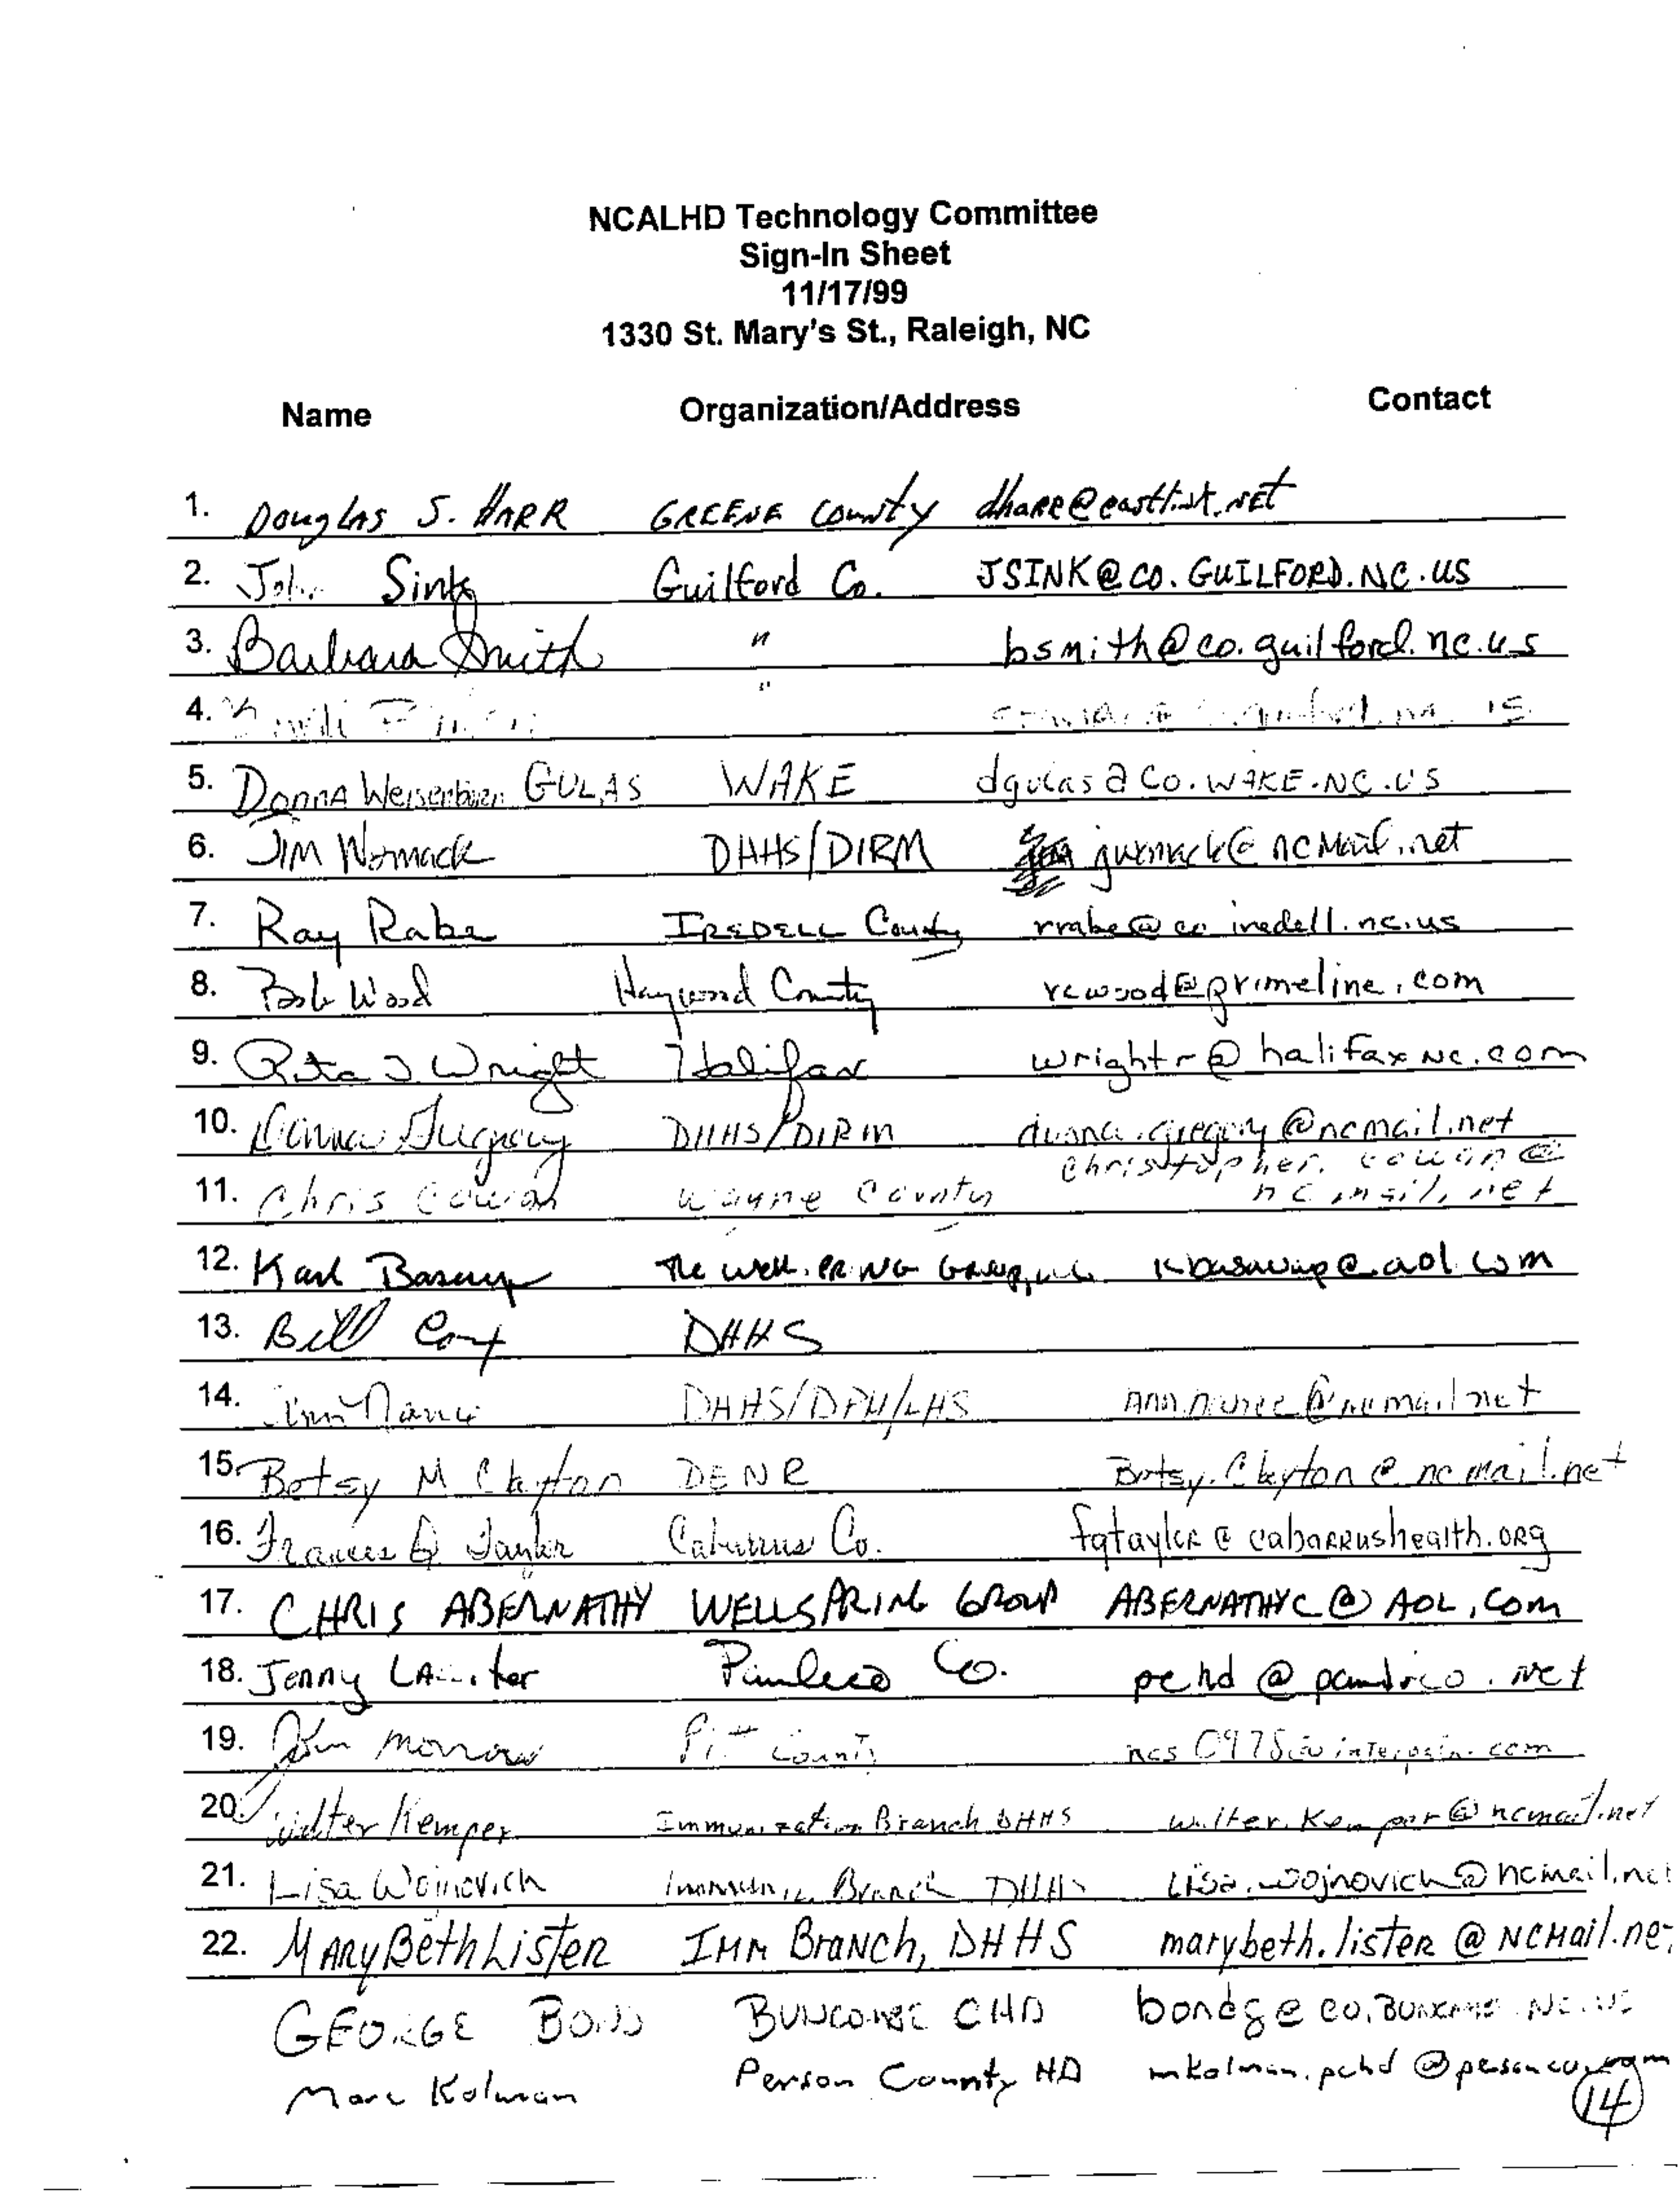 NCALHD Technology Committee
Sign-In Sheet
11/17/99
1330 St. Mary's St., Raleigh, NC
Name Organization/Address Contact
1. Douglas S. HARR GREENE County dharr@eastlink.net
2. John Sink Guilford Co. JSINK@CO.GUILFORD.NC.US
3. Barbara Smith " bsmith@co.guilford.nc.us
4. "
5. Donna GULAS WAKE dgulas@Co.WAKE.NC.US
6. JIM Womack DHHS/DIRM jwomack@ncmail.net
7. Ray Rabe IREDELL County rrabe@co.iredell.nc.us
8. Bob Wood Haywood County rcwood@primeline.com
9. Rita J. Wright Halifax wrightr@halifaxnc.com
10. Donna Gregory DHHS/DIRM donna.gregory@ncmail.net
11. Chris Cowan Wayne County christopher.cowan@
ncmail.net
12. Karl @aol.com
13. Bill Cox DHHS
14. Ann Nance DHHS/DPH/LHS @ncmail.net
15. Betsy M Clayton DENR Betsy.Clayton@ncmail.net
16. Frances Q Taylor Cabarrus Co. fqtaylor@cabarrushealth.org
17. CHRIS ABERNATHY WELLSPRING GROUP ABERNATHYC@AOL.COM
18. Jenny Pamlico Co. pchd@pamlico.net
19. John Morrow Pitt County
20. Walter Kemper Immunization Branch DHHS walter.kemper@ncmail.net
21. Lisa Wojnovich Branch DHHS Lisa.wojnovich@ncmail.net
22. MARYBeth Lister IMM Branch, DHHS marybeth.lister@NCMail.ne
GEORGE BOND BUNCOMBE CHD bondg@co.BUNCOMBE.NC.US
Marc Kolman Person County HD mkolman.pchd@
14